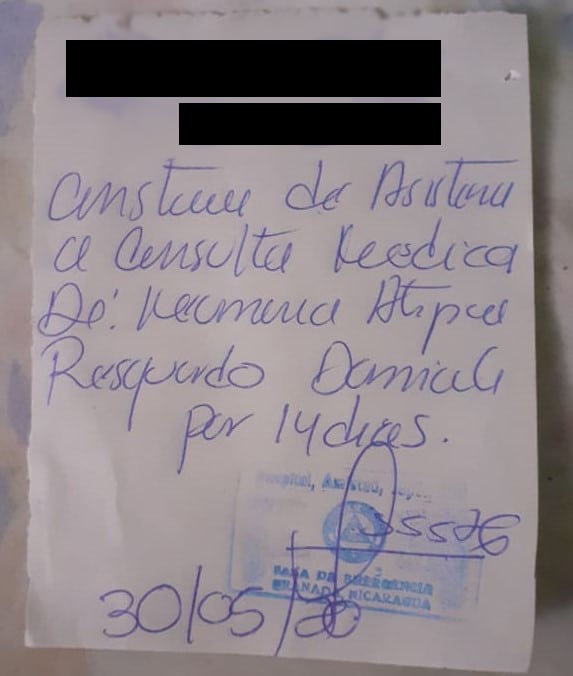 Constancia de Asistencia
a Consulta Medica
De: Neumonia Atipica
Resguardo Domicili
por 14 dias.
Hospital, Amistad, Japon
55576
SALA DE EMERGENCIA
GRANADA, NICARAGUA
30/05/20